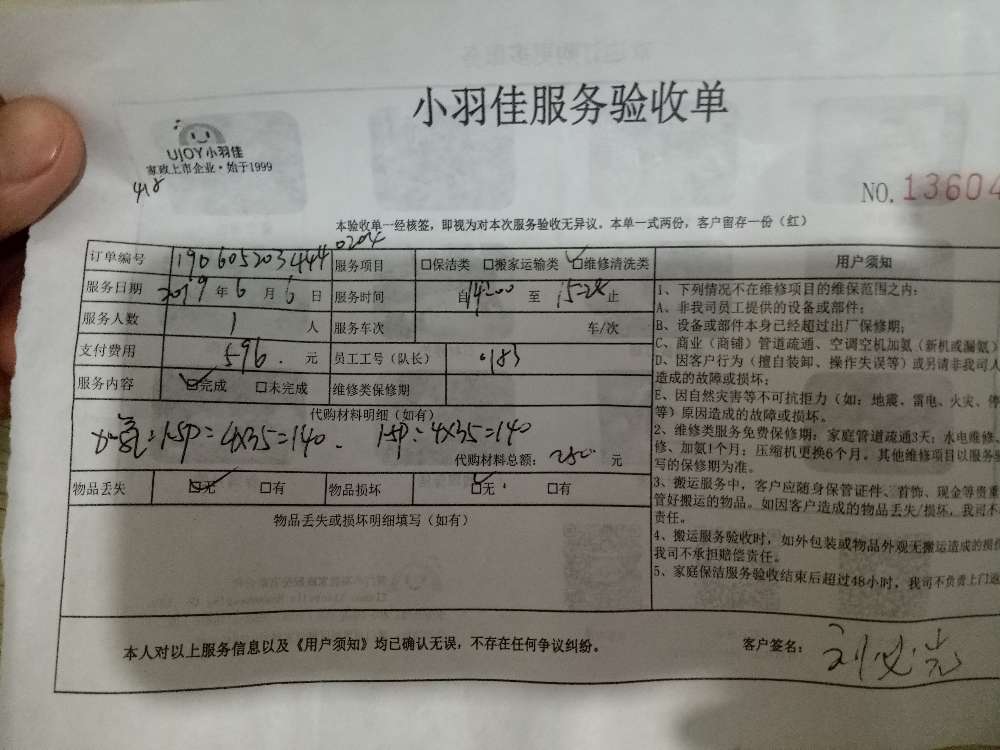 小羽佳服务验收单
UJOY小羽佳
家政上市企业·始于1999
418
NO.13604
本验收单一经核签，即视为对本次服务验收无异议。本单一式两份，客户留存一份（红）
0204
订单编号 190605203444 服务项目 □保洁类 □搬家运输类 ☑维修清洗类
服务日期 2019年6月6日 服务时间 自14:00至15:28止
服务人数 1人 服务车次 车/次
支付费用 596.元 员工工号（队长） 183
服务内容 ☑完成 □未完成 维修类保修期
代购材料明细（如有）
1.5P=4X35=140. 1.5P=4X35=140
代购材料总额：280元
物品丢失 ☑无 □有 物品损坏 ☑无 □有
物品丢失或损坏明细填写（如有）
用户须知
1、下列情况不在维修项目的维保范围之内：
A、非我司员工提供的设备或部件；
B、设备或部件本身已经超过出厂保修期；
C、商业（商铺）管道疏通、空调空机加氨（新机或漏氨）
D、因客户行为（擅自装卸、操作失误等）或另请非我司人
造成的故障或损坏；
E、因自然灾害等不可抗拒力（如：地震、雷电、火灾、停
等）原因造成的故障或损坏。
2、维修类服务免费保修期：家庭管道疏通3天；水电维修、
修、加氨1个月；压缩机更换6个月。其他维修项目以服务
写的保修期为准。
3、搬运服务中，客户应随身保管证件、首饰、现金等贵重
管好搬运的物品。如因客户造成的物品丢失/损坏，我司不
责任。
4、搬运服务验收时，如外包装或物品外观无搬运造成的损
我司不承担赔偿责任。
5、家庭保洁服务验收结束后超过48小时，我司不负责上门返
本人对以上服务信息以及《用户须知》均已确认无误，不存在任何争议纠纷。
客户签名：